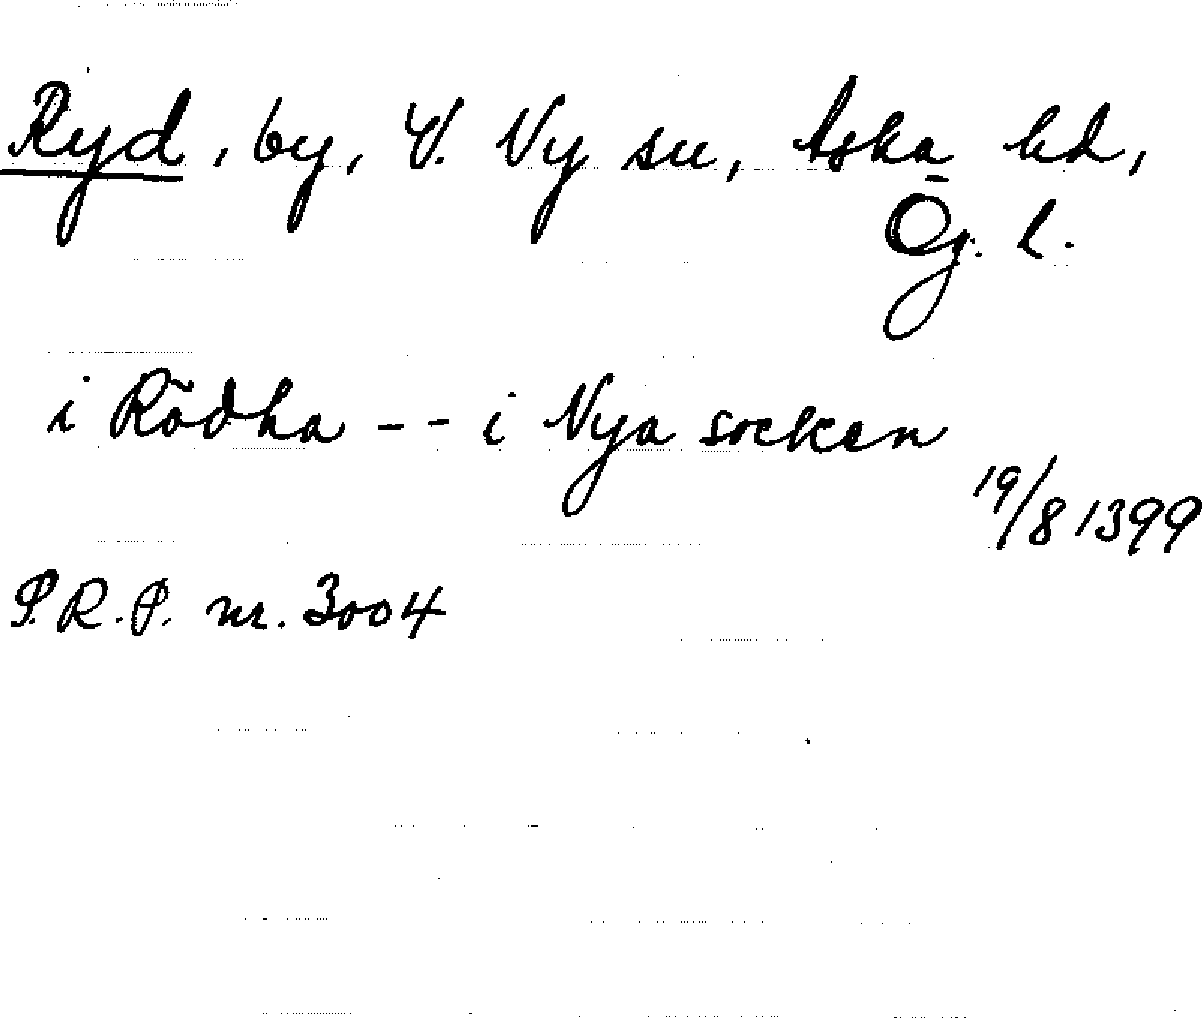 Ryd, by, V. Ny sn, Aska hd,
Ög. l.
i Rödha -- i Nya socken
19/8 1399
S.R.P. nr. 3004